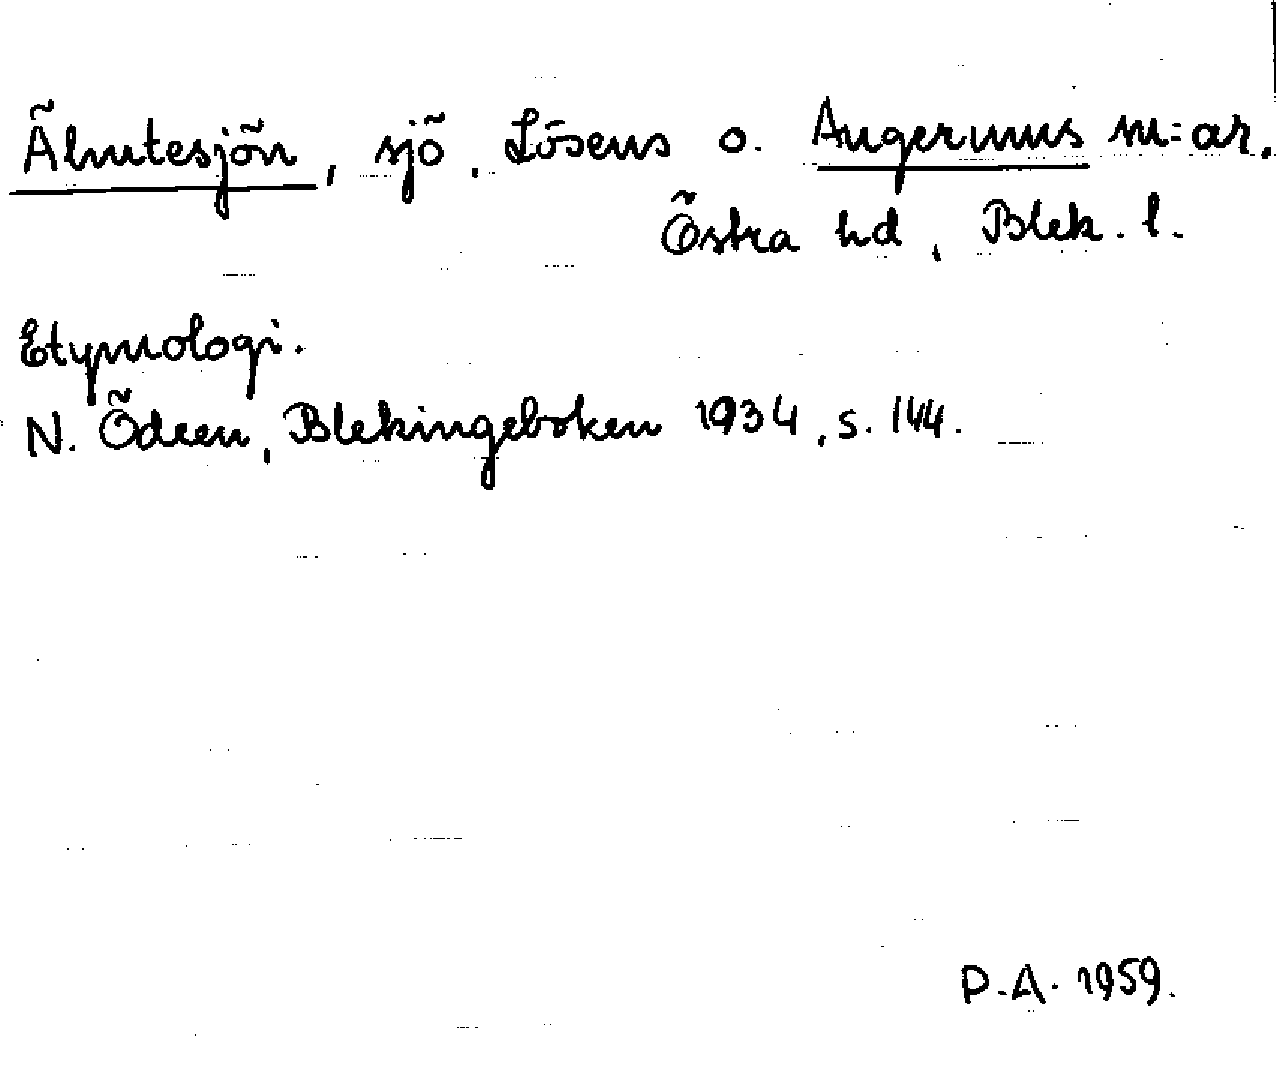 Älmtesjön, sjö, Lösens o. Augerums m=ar.
Östra hd, Blek. l.
Etymologi.
N. Ödeen, Blekingeboken 1934, s. 144.
P.A. 1959.